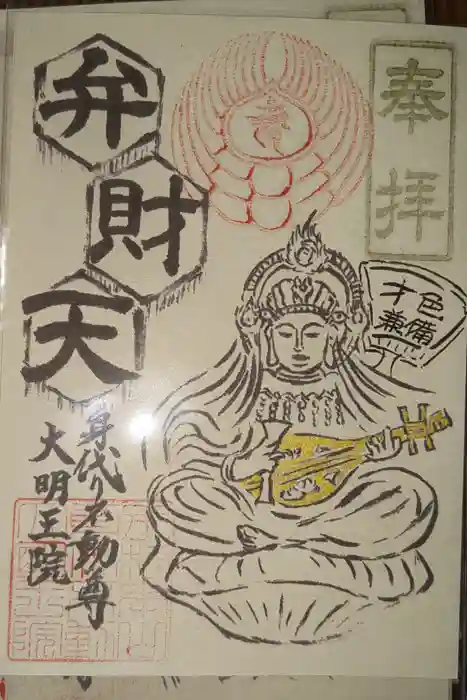 奉拝
弁財天
才色兼備
身代り不動尊
大明王院